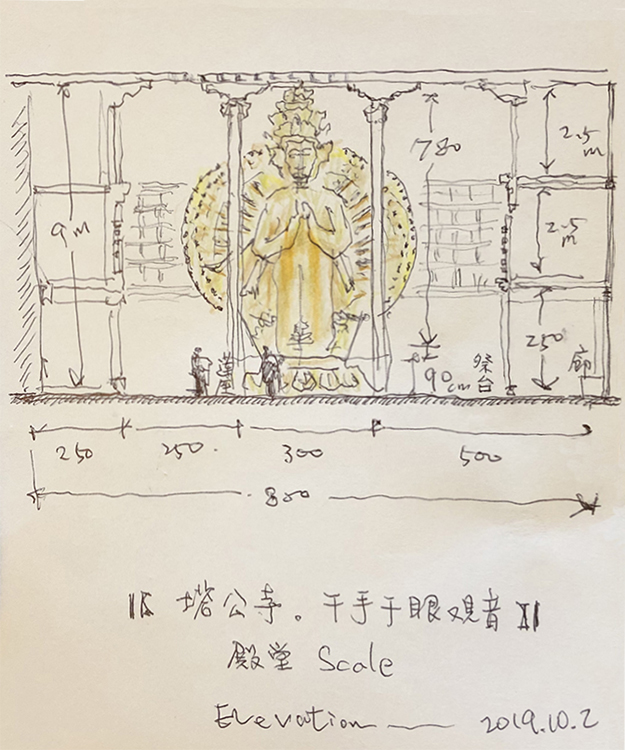 9m
780
2.5
m
2.5
m
250
90cm
祭台
廊
250 250. 300 500
800
塔公寺。千手千眼观音
殿堂 Scale
Elevation —— 2019.10.2